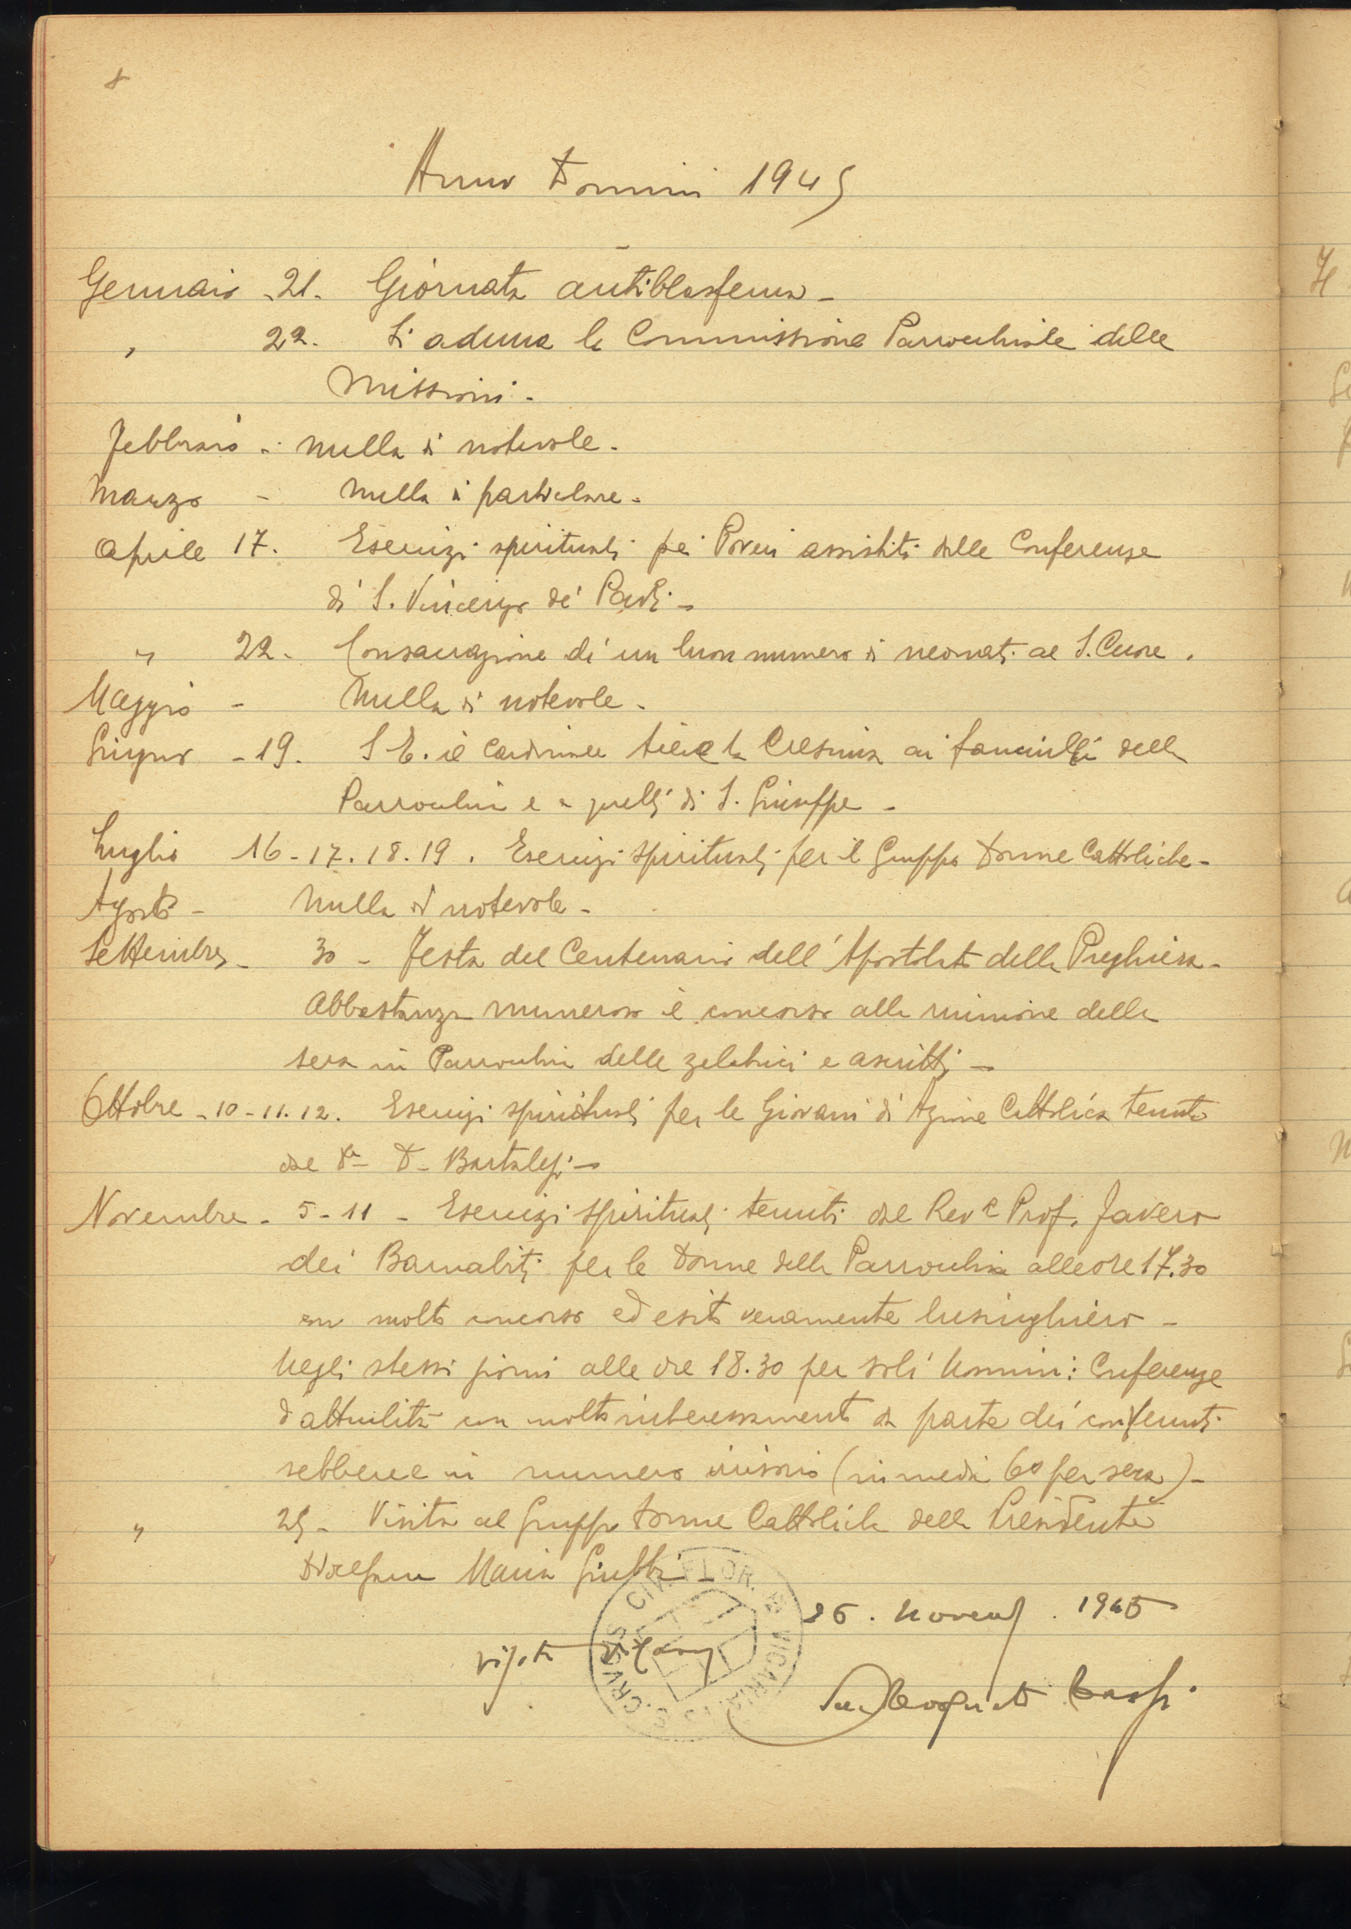 8
Anno Domini 1945
Gennaio - 21. Giornata antiblasfema -
" 22. Si aduna la Commissione Parrocchiale delle
Missioni -
Febbraio - nulla di notevole -
Marzo - Nulla di particolare -
Aprile 17. Esercizi spirituali pei Poveri assistiti dalle Conferenze
di S. Vincenzo de' Paoli -
" 22. Consacrazione di un buon numero di neonati al S. Cuore.
Maggio - Nulla di notevole -
Giugno - 19. S. E. il Cardinale tiene la Cresima ai fanciulli della
Parrocchia e a quelli di S. Giuseppe -
Luglio 16 - 17. 18. 19. Esercizi spirituali per il Gruppo Donne Cattoliche -
Agosto - Nulla di notevole -
Settembre - 30 - Festa del Centenario dell'Apostolato della Preghiera -
Abbastanza numeroso il concorso alla riunione della
sera in Parrocchia delle zelatrici e ascritti -
Ottobre - 10 - 11. 12. Esercizi spirituali per le Giovani di Azione Cattolica tenuti
dal D. Bartalesi -
Novembre - 5 - 11 - Esercizi spirituali tenuti dal Rev. Prof. Favero
dei Barnabiti per le Donne della Parrocchia alle ore 17.30
con molto concorso ed esito veramente lusinghiero -
Negli stessi giorni alle ore 18.30 per soli Uomini: Conferenze
d'attualità con molto interessamento da parte dei
sebbene in numero irrisorio (in media 60 per sera) -
" 25 - Visita al Gruppo Donne Cattoliche della Presidente
Diocesana Maria
26. Novemb. 1945
visto
S. CRVCIS CIV. FLOR. VICARIA